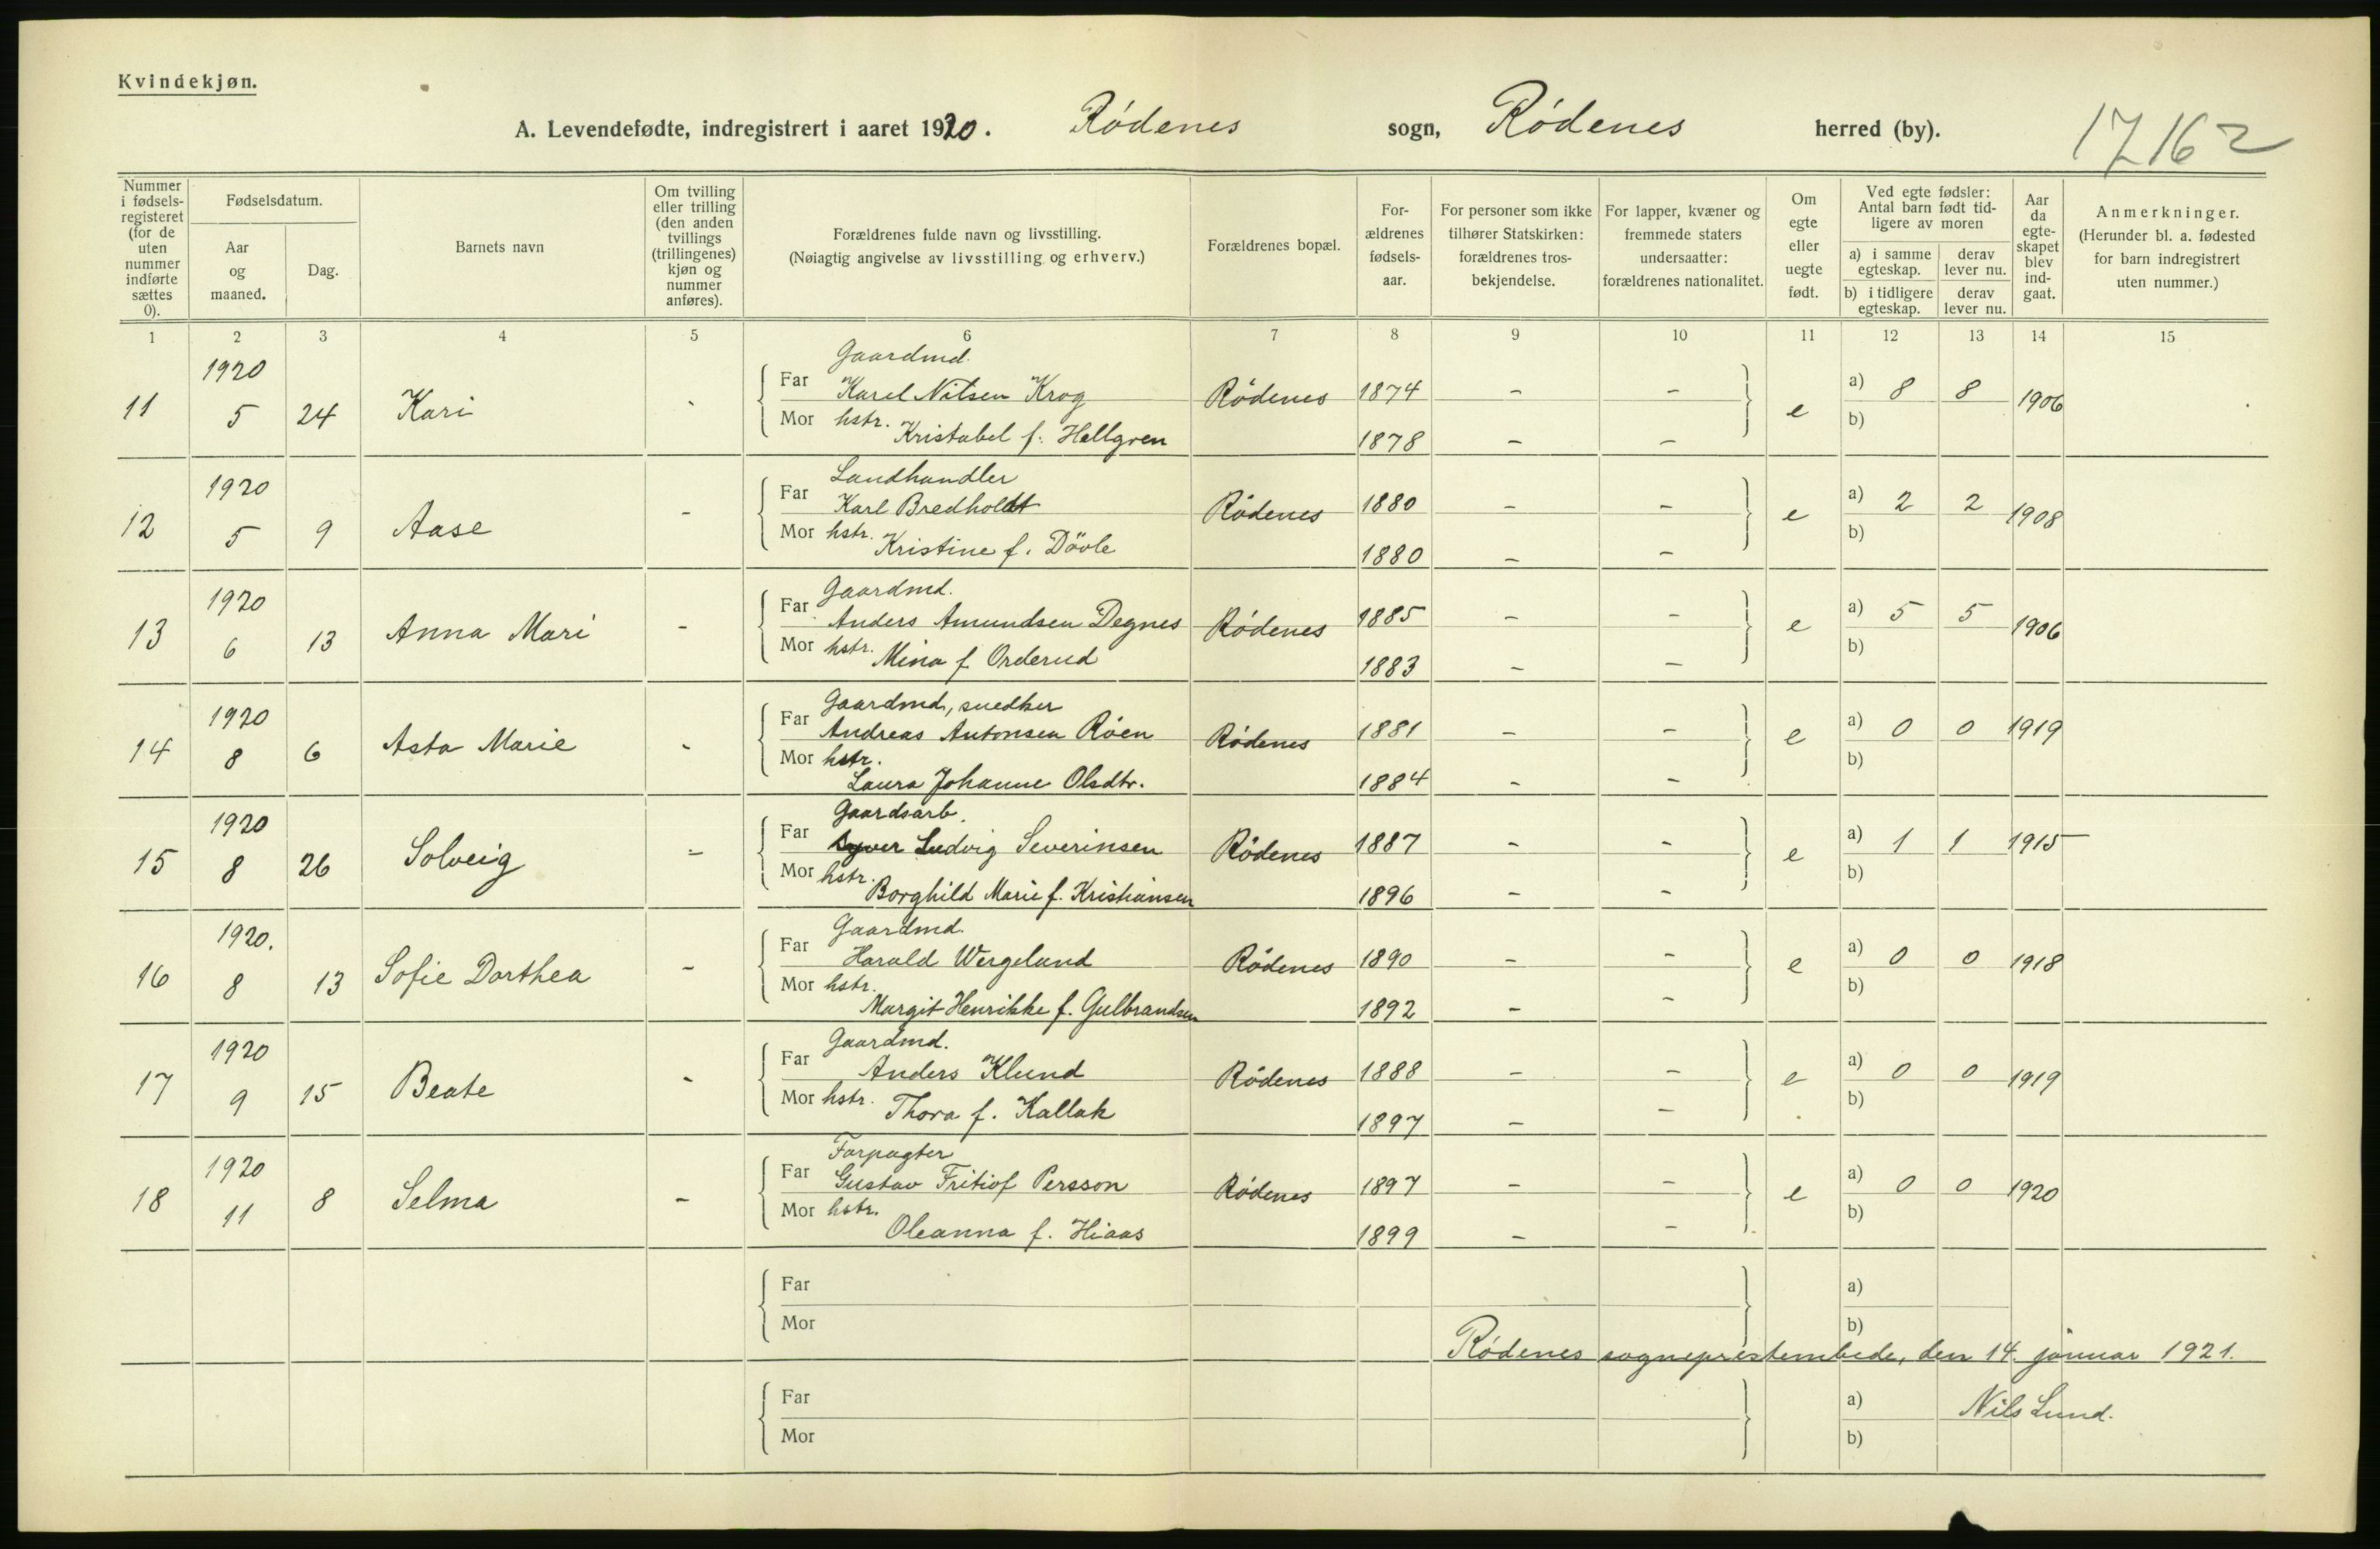 Kvindekjøn.
A. Levendefødte, indregistrert i aaret 1920. Rödenes sogn, Rödenes herred (by). 17162
Nummer i fødsels-registeret (for de uten nummer indførte sættes 0).
Fødselsdatum.
Aar og maaned.
Dag.
Barnets navn
Om tvilling eller trilling (den anden tvillings (trillingenes) kjøn og nummer anføres).
Forældrenes fulde navn og livsstilling.
(Nøiagtig angivelse av livsstilling og erhverv.)
Forældrenes bopæl.
For-ældrenes fødsels-aar.
For personer som ikke tilhører Statskirken: forældrenes tros-bekjendelse.
For lapper, kvæner og fremmede staters undersaatter: forældrenes nationalitet.
Om egte eller uegte født.
Ved egte fødsler: Antal barn født tid-ligere av moren
a) i samme egteskap.
derav lever nu.
b) i tidligere egteskap.
derav lever nu.
Aar da egte-skapet blev ind-gaat.
Anmerkninger.
(Herunder bl. a. fødested for barn indregistrert uten nummer.)
1 2 3 4 5 6 7 8 9 10 11 12 13 14 15
1920 Gaardmd.
11 5 24 Kari - Far Karel Nilsen Krog Rödenes 1874 - - e a) 8 8 1906
Mor hstr. Kristabel f. Hellgren 1878 - - b)
1920 Landhandler
12 5 9 Aase - Far Karl Bredholdt Rödenes 1880 - - e a) 2 2 1908
Mor hstr. Kristine f. Dövle 1880 - - b)
1920 Gaardmd.
13 6 13 Anna Mari - Far Anders Amundsen Degnes Rödenes 1885 - - e a) 5 5 1906
Mor hstr. Mina f Orderud 1883 - - b)
1920 Gaardmd, snedker
14 8 6 Asta Marie - Far Andreas Antonsen Röen Rödenes 1881 - - e a) 0 0 1919
Mor hstr. Laura Johanne Olsdtr. 1884 - - b)
1920 Gaardsarb.
15 8 26 Solveig - Far Syver Ludvig Severinsen Rödenes 1887 - - e a) 1 1 1915
Mor hstr. Borghild Marie f. Kristiansen 1896 - - b)
1920. Gaardmd.
16 8 13 Sofie Dorthea - Far Harald Wergeland Rödenes 1890 - - e a) 0 0 1918
Mor hstr. Margit Henrikke f. Gulbrandsen 1892 - - b)
1920 Gaardmd.
17 9 15 Beate - Far Anders Klund Rödenes 1888 - - e a) 0 0 1919
Mor hstr. Thora f. Kallak 1897 - - b)
1920 Forpagter
18 11 8 Selma - Far Gustav Fritiof Persson Rödenes 1897 - - e a) 0 0 1920
Mor hstr. Oleanna f. Hiaas 1899 - - b)
Far a)
Mor b)
Rödenes sogneprestembede, den 14. januar 1921.
Far a) Nils Lund.
Mor b)